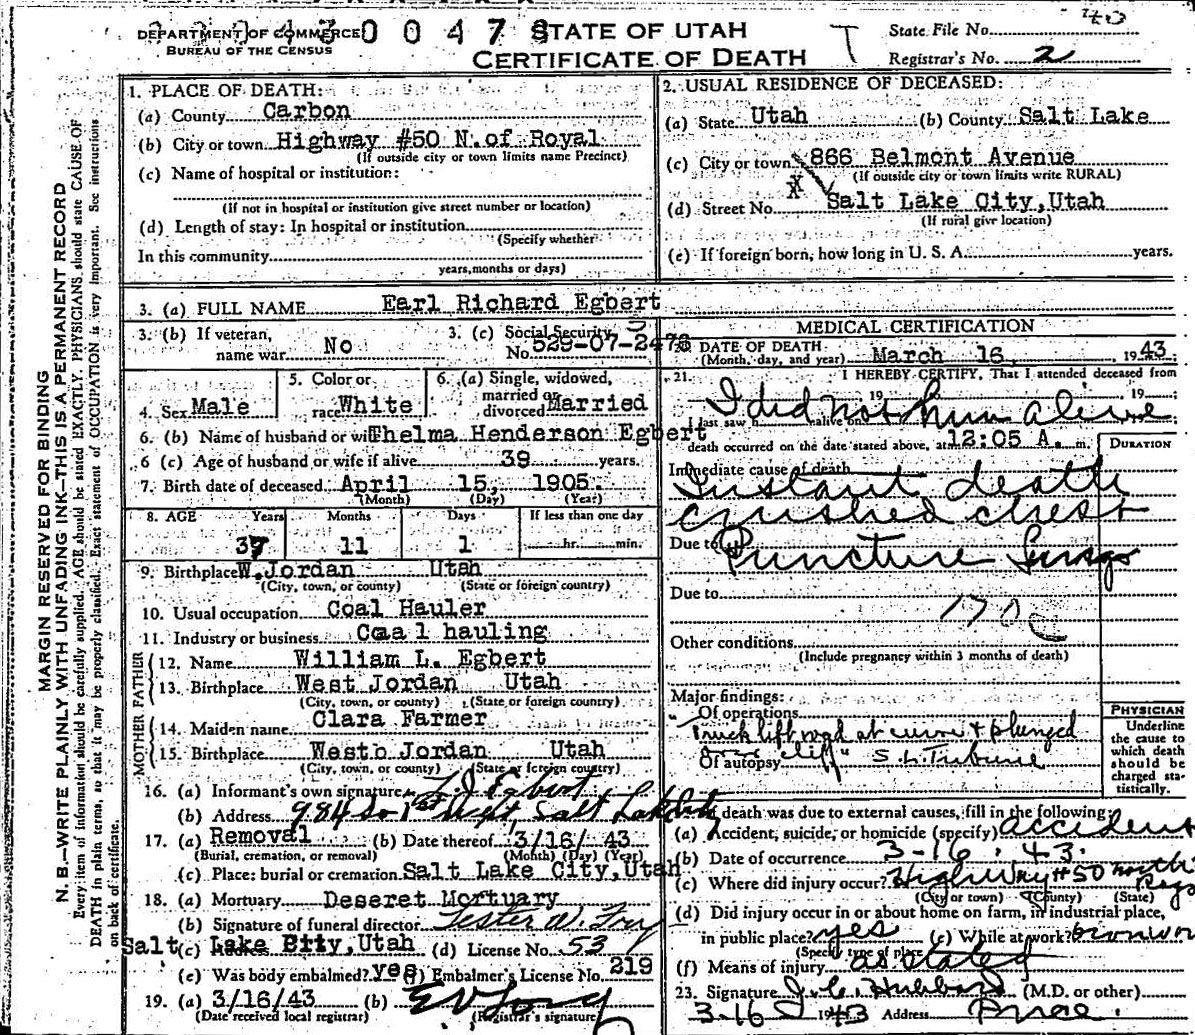 DEPARTMENT OF COMMERCE
BUREAU OF THE CENSUS
0 0 4 7 8
STATE OF UTAH
CERTIFICATE OF DEATH
State File No.
Registrar's No. 2
MARGIN RESERVED FOR BINDING
N. B.—WRITE PLAINLY WITH UNFADING INK—THIS IS A PERMANENT RECORD
Every item of information should be carefully supplied. AGE should be stated EXACTLY. PHYSICIANS should state CAUSE OF
DEATH in plain terms, so that it may be properly classified. Exact statement of OCCUPATION is very important. See instructions
on back of certificate.
1. PLACE OF DEATH:
(a) County Carbon
(b) City or town Highway #50 N. of Royal
(If outside city or town limits name Precinct)
(c) Name of hospital or institution:
(If not in hospital or institution give street number or location)
(d) Length of stay: In hospital or institution
(Specify whether
In this community
years, months or days)
2. USUAL RESIDENCE OF DECEASED:
(a) State Utah (b) County Salt Lake
(c) City or town 866 Belmont Avenue
(If outside city or town limits write RURAL)
(d) Street No. Salt Lake City,Utah
(If rural give location)
(e) If foreign born, how long in U. S. A. years.
3. (a) FULL NAME Earl Richard Egbert
3. (b) If veteran,
name war No
3. (c) Social Security
No. 529-07-2476
4. Sex Male
5. Color or
race White
6. (a) Single, widowed,
married or
divorced Married
6. (b) Name of husband or wife Thelma Henderson Egbert
6 (c) Age of husband or wife if alive 39 years.
7. Birth date of deceased April 15, 1905
(Month) (Day) (Year)
8. AGE Years Months Days If less than one day
37 11 1 hr. min.
9. Birthplace W.Jordan Utah
(City, town, or county) (State or foreign country)
10. Usual occupation Coal Hauler
11. Industry or business Coal hauling
FATHER
12. Name William L. Egbert
13. Birthplace West Jordan Utah
(City, town, or county) (State or foreign country)
MOTHER
14. Maiden name Clara Farmer
15. Birthplace West Jordan Utah
(City, town, or county) (State or foreign country)
16. (a) Informant's own signature Egbert
(b) Address 984 So 1st West, Salt Lake City
17. (a) Removal (b) Date thereof 3/16/ 43
(Burial, cremation, or removal) (Month) (Day) (Year)
(c) Place: burial or cremation Salt Lake City,Utah
18. (a) Mortuary Deseret Mortuary
(b) Signature of funeral director Lester W.
Salt (c) Lake City,Utah (d) License No. 53
(e) Was body embalmed? yes (f) Embalmer's License No. 219
19. (a) 3/16/43 (b)
(Date received local registrar) (Registrar's signature)
MEDICAL CERTIFICATION
20. DATE OF DEATH
(Month, day, and year) March 16, 1943
21. I HEREBY CERTIFY, That I attended deceased from
19 19
I did not him alive
last saw h alive on
death occurred on the date stated above, at 12:05 A. m.
DURATION
Immediate cause of death
Instant death
crushed chest
Due to Puncture lungs
Due to
170c
Other conditions
(Include pregnancy within 3 months of death)
Major findings:
Of operations
"Truck left road at curve & plunged
Of autopsy cliff" S. L. Tribune
PHYSICIAN
Underline
the cause to
which death
should be
charged sta-
tistically.
death was due to external causes, fill in the following:
(a) Accident, suicide, or homicide (specify) accident
(b) Date of occurrence 3-16-43.
(c) Where did injury occur? Highway #50 north
(City or town) (County) (State)
(d) Did injury occur in or about home on farm, in industrial place,
in public place? yes (e) While at work?
(Specify type of place)
(f) Means of injury as stated
23. Signature J. C. Hubbard (M.D. or other)
3-16 1943 Address Price.